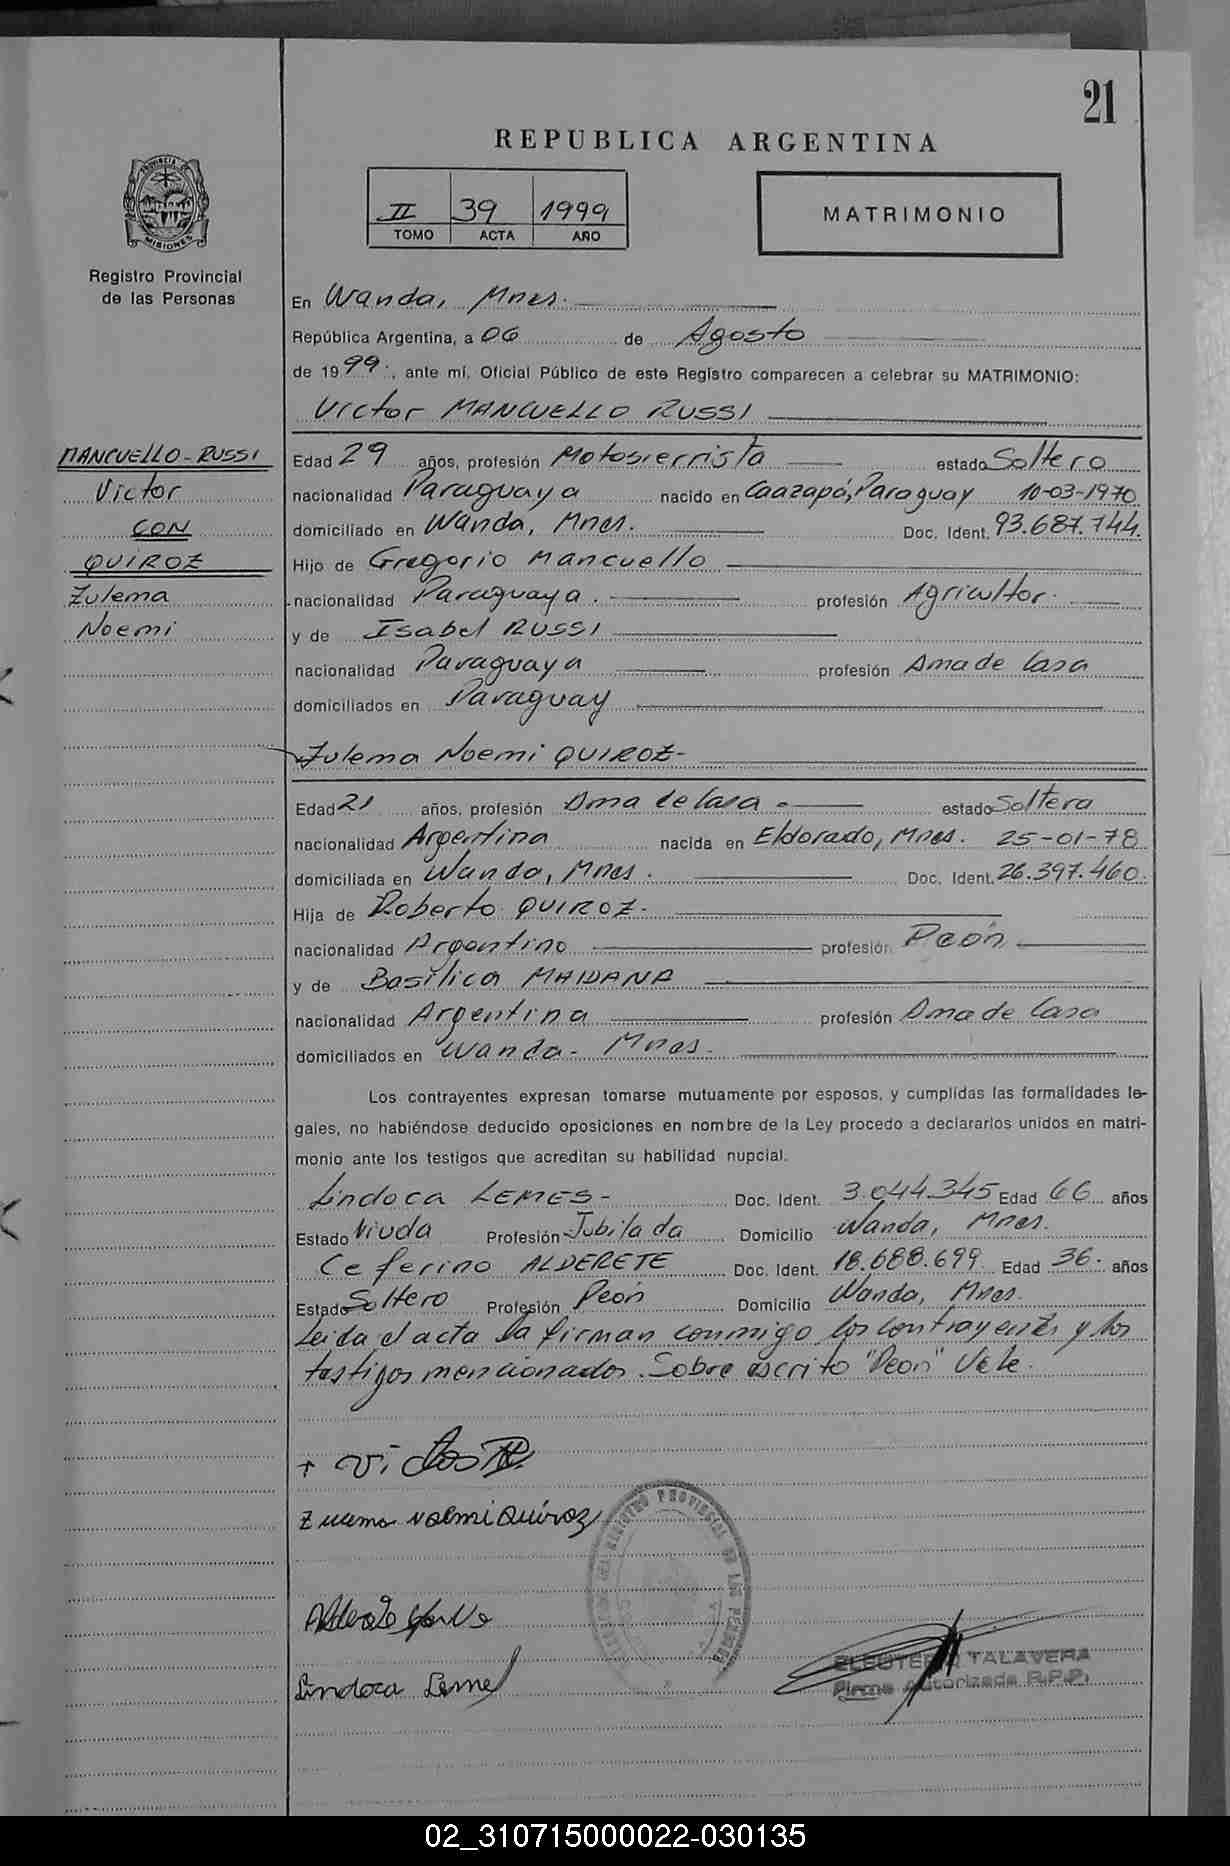 21
REPUBLICA ARGENTINA
PROVINCIA DE
MISIONES
Registro Provincial
de las Personas
II 39 1999
TOMO ACTA AÑO
MATRIMONIO
En Wanda, Mnes.
República Argentina, a 06 de Agosto
de 1999., ante mí, Oficial Público de este Registro comparecen a celebrar su MATRIMONIO:
Victor MANCUELLO RUSSI
MANCUELLO-RUSSI
Victor
CON
QUIROZ
Zulema
Noemi
Edad 29 años, profesión Motosierrista estado Soltero
nacionalidad Paraguaya nacido en Caazapá, Paraguay 10-03-1970
domiciliado en Wanda, Mnes. Doc. Ident. 93.687.744.
Hijo de Gregorio Mancuello
nacionalidad Paraguaya. profesión Agricultor.
y de Isabel RUSSI
nacionalidad Paraguaya profesión Ama de Casa
domiciliados en Paraguay
Zulema Noemi QUIROZ-
Edad 21 años, profesión Ama de Casa - estado Soltera
nacionalidad Argentina nacida en Eldorado, Mnes. 25-01-78
domiciliada en Wanda, Mnes. Doc. Ident. 26.397.460.
Hija de Roberto QUIROZ.
nacionalidad Argentino profesión Peón
y de Basilica MAIDANA
nacionalidad Argentina profesión Ama de Casa
domiciliados en Wanda- Mnes.
Los contrayentes expresan tomarse mutuamente por esposos, y cumplidas las formalidades le-
gales, no habiéndose deducido oposiciones en nombre de la Ley procedo a declararlos unidos en matri-
monio ante los testigos que acreditan su habilidad nupcial.
Lindoca LEMES- Doc. Ident. 3.044.345 Edad 66 años
Estado Viuda Profesión Jubilada Domicilio Wanda, Mnes.
Ceferino ALDERETE Doc. Ident. 18.688.699 Edad 36. años
Estado Soltero Profesión Peón Domicilio Wanda, Mnes.
Leida el acta la firman conmigo los contrayentes y los
testigos mencionados. Sobre escrito "Peón" Vale.
+ Victor
Zulema Noemi Quiroz
REGISTRO PROVINCIAL DE LAS PERSONAS
Lindoca Lemes
ELEUTERIA TALAVERA
Firma Autorizada R.P.P.
02_310715000022-030135